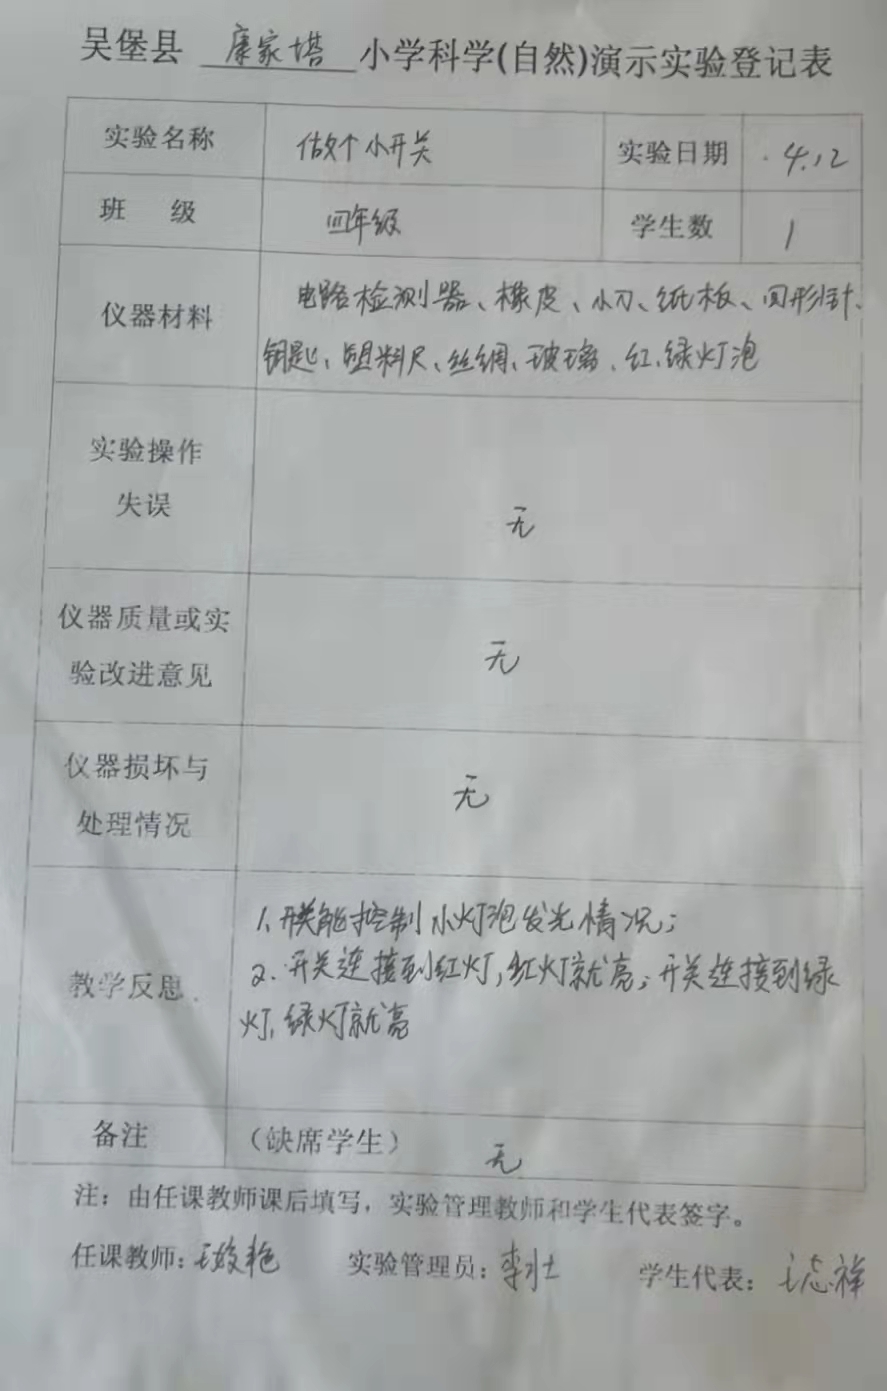 吴堡县 康家塔 小学科学(自然)演示实验登记表
实验名称 做个小开关 实验日期 4.12
班 级 四年级 学生数 1
仪器材料 电路检测器、橡皮、小刀、纸板、回形针、
钥匙、塑料尺、丝绸、玻璃、红、绿灯泡
实验操作
失误
无
仪器质量或实
验改进意见
无
仪器损坏与
处理情况
无
教学反思
1、开关能控制小灯泡发光情况；
2、开关连接到红灯，红灯就亮；开关连接到绿
灯，绿灯就亮
备注 （缺席学生） 无
注：由任课教师课后填写，实验管理教师和学生代表签字。
任课教师： 实验管理员： 学生代表：王志祥